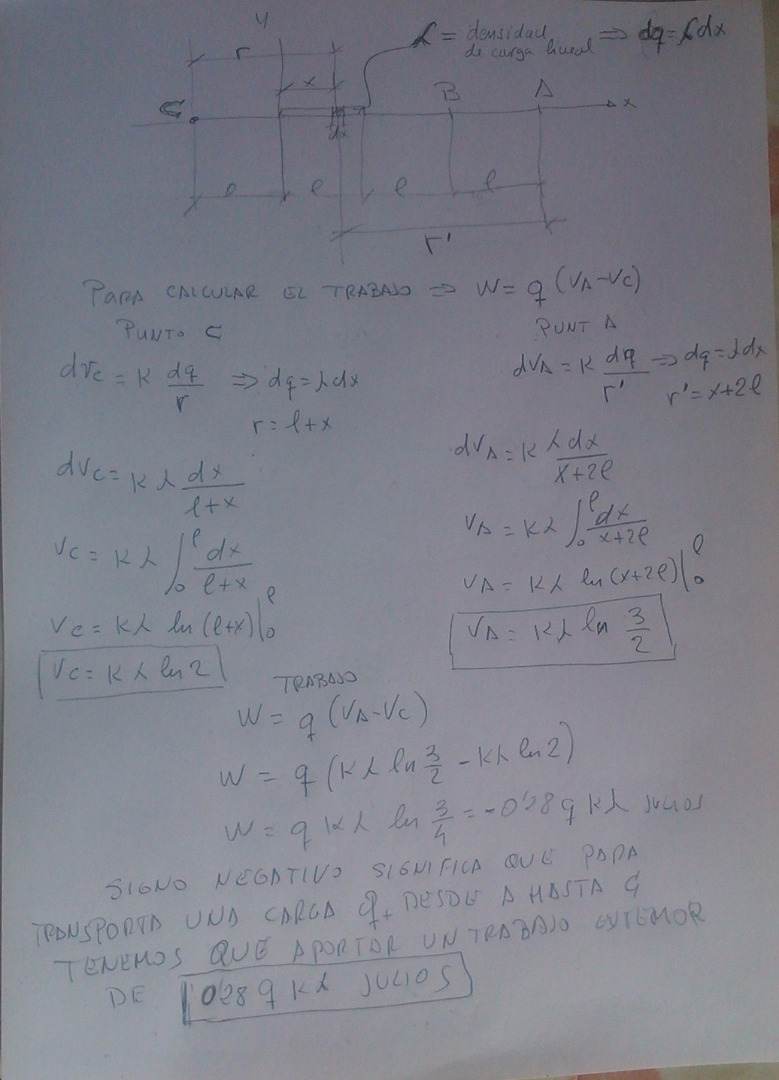 y
λ = densidad
de carga lineal ⇒ dq = λdx
r
x
C
B
A
x
dx
l l l l
r'
PARA CALCULAR EL TRABAJO ⇒ W = q (VA-VC)
PUNTO C
dVC = K dq/r ⇒ dq = λdx
r = l+x
dVC = Kλ dx/(l+x)
VC = Kλ ∫₀ˡ dx/(l+x)
VC = Kλ ln (l+x)|₀ˡ
VC = Kλ ln 2
PUNT A
dVA = K dq/r' ⇒ dq = λdx
r' = x+2l
dVA = K λdx/(x+2l)
VA = Kλ ∫₀ˡ dx/(x+2l)
VA = Kλ ln (x+2l)|₀ˡ
VA = Kλ ln 3/2
TRABAJO
W = q (VA-VC)
W = q (Kλ ln 3/2 - Kλ ln 2)
W = q Kλ ln 3/4 = -0'28 q Kλ JULIOS
SIGNO NEGATIVO SIGNIFICA QUE PARA
TRANSPORTA UNA CARGA q+ DESDE A HASTA C
TENEMOS QUE APORTAR UN TRABAJO EXTERIOR
DE 0'28 q Kλ JULIOS